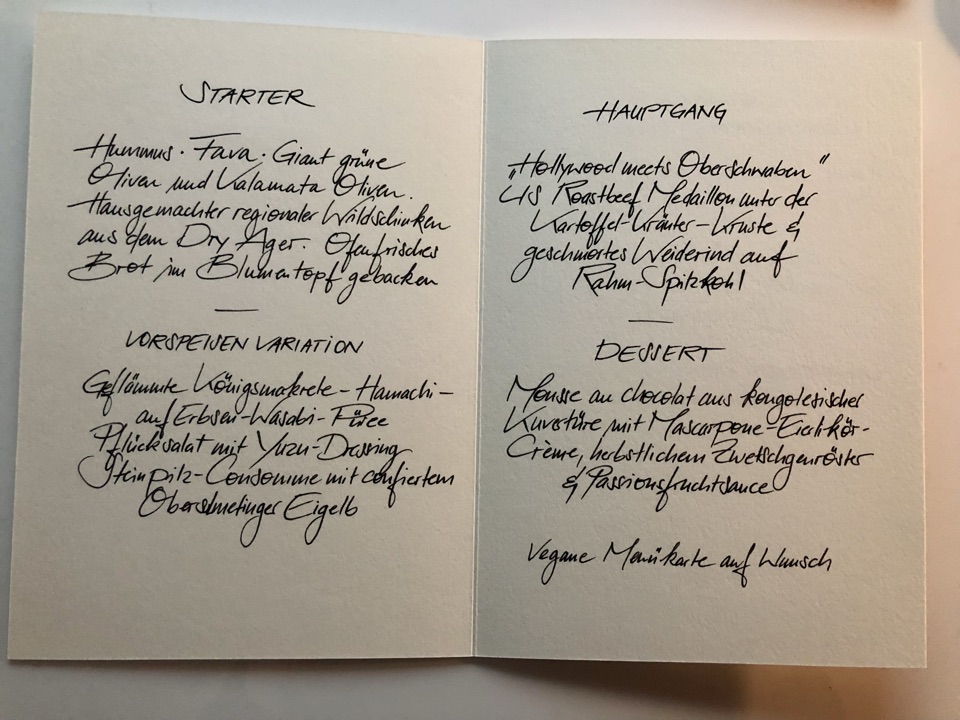 STARTER
Hummus · Fava · Giant grüne
Oliven und Kalamata Oliven.
Hausgemachter regionaler Wildschinken
aus dem Dry Ager. Ofenfrisches
Brot im Blumentopf gebacken
—
VORSPEISEN VARIATION
Geflämmte Königsmakrele - Hamachi -
auf Erbsen-Wasabi-Püree
Pflücksalat mit Yuzu-Dressing
Steinpilz-Consomme mit confiertem
Oberschmeiinger Eigelb
HAUPTGANG
„Hollywood meets Oberschwaben"
US Roastbeef Medaillon unter der
Kartoffel-Kräuter-Kruste &
geschmortes Weiderind auf
Rahm-Spitzkohl
—
DESSERT
Mousse au chocolat aus kongolesischer
Kuvertüre mit Mascarpone-Eierlikör-
Crème, herbstlichem Zwetschgenröster
& Passionsfruchtsauce
Vegane Menükarte auf Wunsch